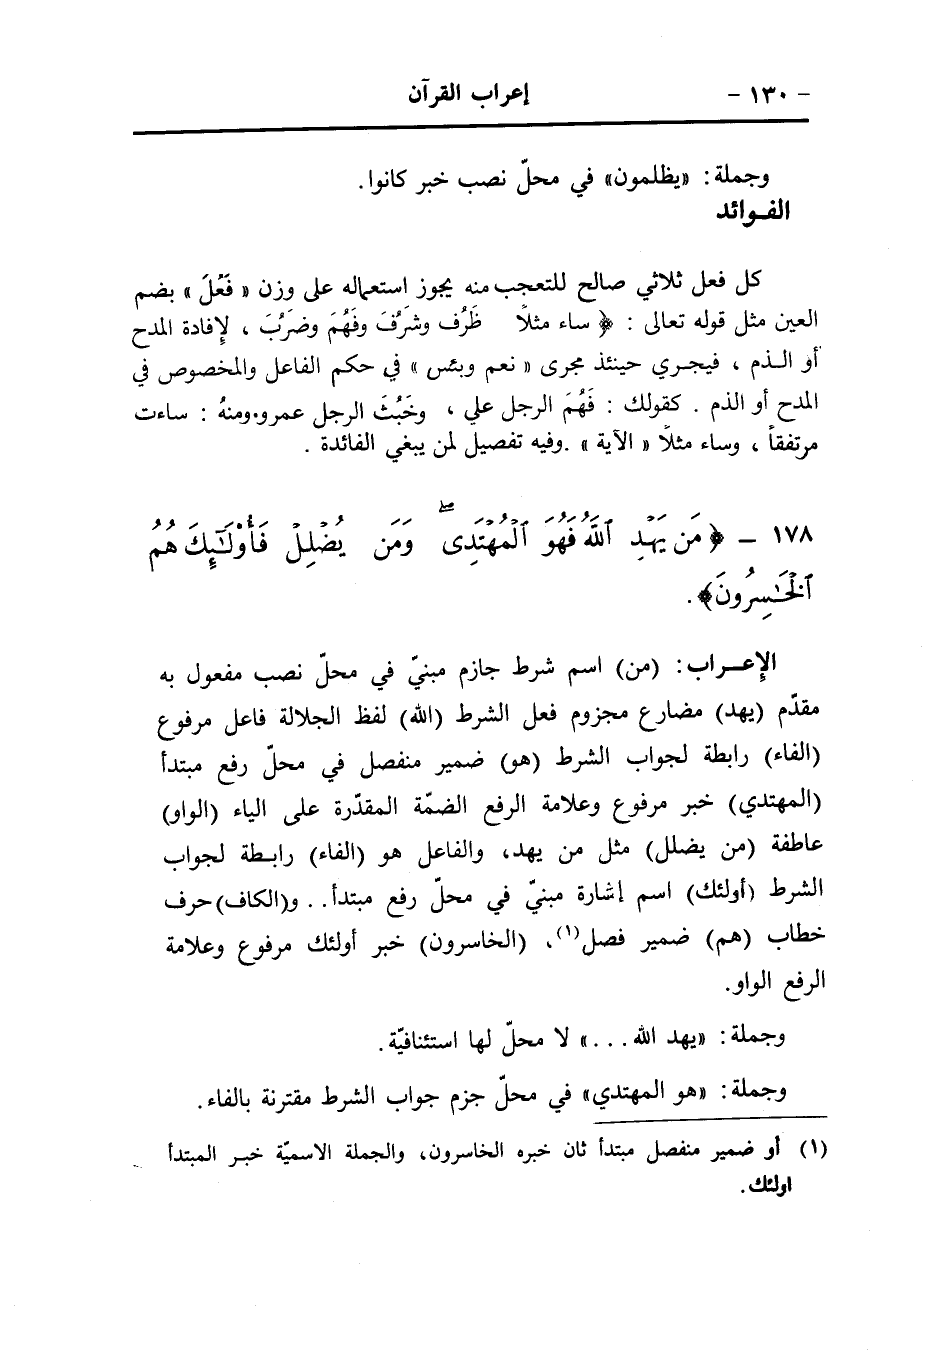 - ١٣٠ - إعراب القرآن
وجملة: «يظلمون» في محلّ نصب خبر كانوا.
الفـوائد
كل فعل ثلاثي صالح للتعجب منه يجوز استعماله على وزن « فَعُلَ » بضم
العين مثل قوله تعالى : ﴿ ساء مثلاً ظَرُف وشَرُفَ وفَهُمَ وضَرُبَ ، لإفادة المدح
أو الـذم ، فيجـري حينئذ مجرى « نعم وبئس » في حكم الفاعل والمخصوص في
المدح أو الذم . كقولك : فَهُمَ الرجل علي ، وخَبُثَ الرجل عمرو.ومنهُ : ساءت
مرتفقاً ، وساء مثلًا « الآية » .وفيه تفصيل لمن يبغي الفائدة .
١٧٨ - ﴿مَن يَهْدِ ٱللَّهُ فَهُوَ ٱلْمُهْتَدِىۖ وَمَن يُضْلِلْ فَأُوْلَـٰٓئِكَ هُمُ
ٱلْخَـٰسِرُونَ﴾.
الإعـــراب: (من) اسم شرط جازم مبنيّ في محلّ نصب مفعول به
مقدّم (يهد) مضارع مجزوم فعل الشرط (الله) لفظ الجلالة فاعل مرفوع
(الفاء) رابطة لجواب الشرط (هو) ضمير منفصل في محلّ رفع مبتدأ
(المهتدي) خبر مرفوع وعلامة الرفع الضمّة المقدّرة على الياء (الواو)
عاطفة (من يضلل) مثل من يهد، والفاعل هو (الفاء) رابـطة لجواب
الشرط (أولئك) اسم إشارة مبنيّ في محلّ رفع مبتدأ.. و(الكاف)حرف
خطاب (هم) ضمير فصل(١)، (الخاسرون) خبر أولئك مرفوع وعلامة
الرفع الواو.
وجملة: «يهد الله ...» لا محلّ لها استئنافيّة.
وجملة: «هو المهتدي» في محلّ جزم جواب الشرط مقترنة بالفاء.
(١) أو ضمير منفصل مبتدأ ثان خبره الخاسرون، والجملة الاسميّة خبـر المبتدأ
اولئك.